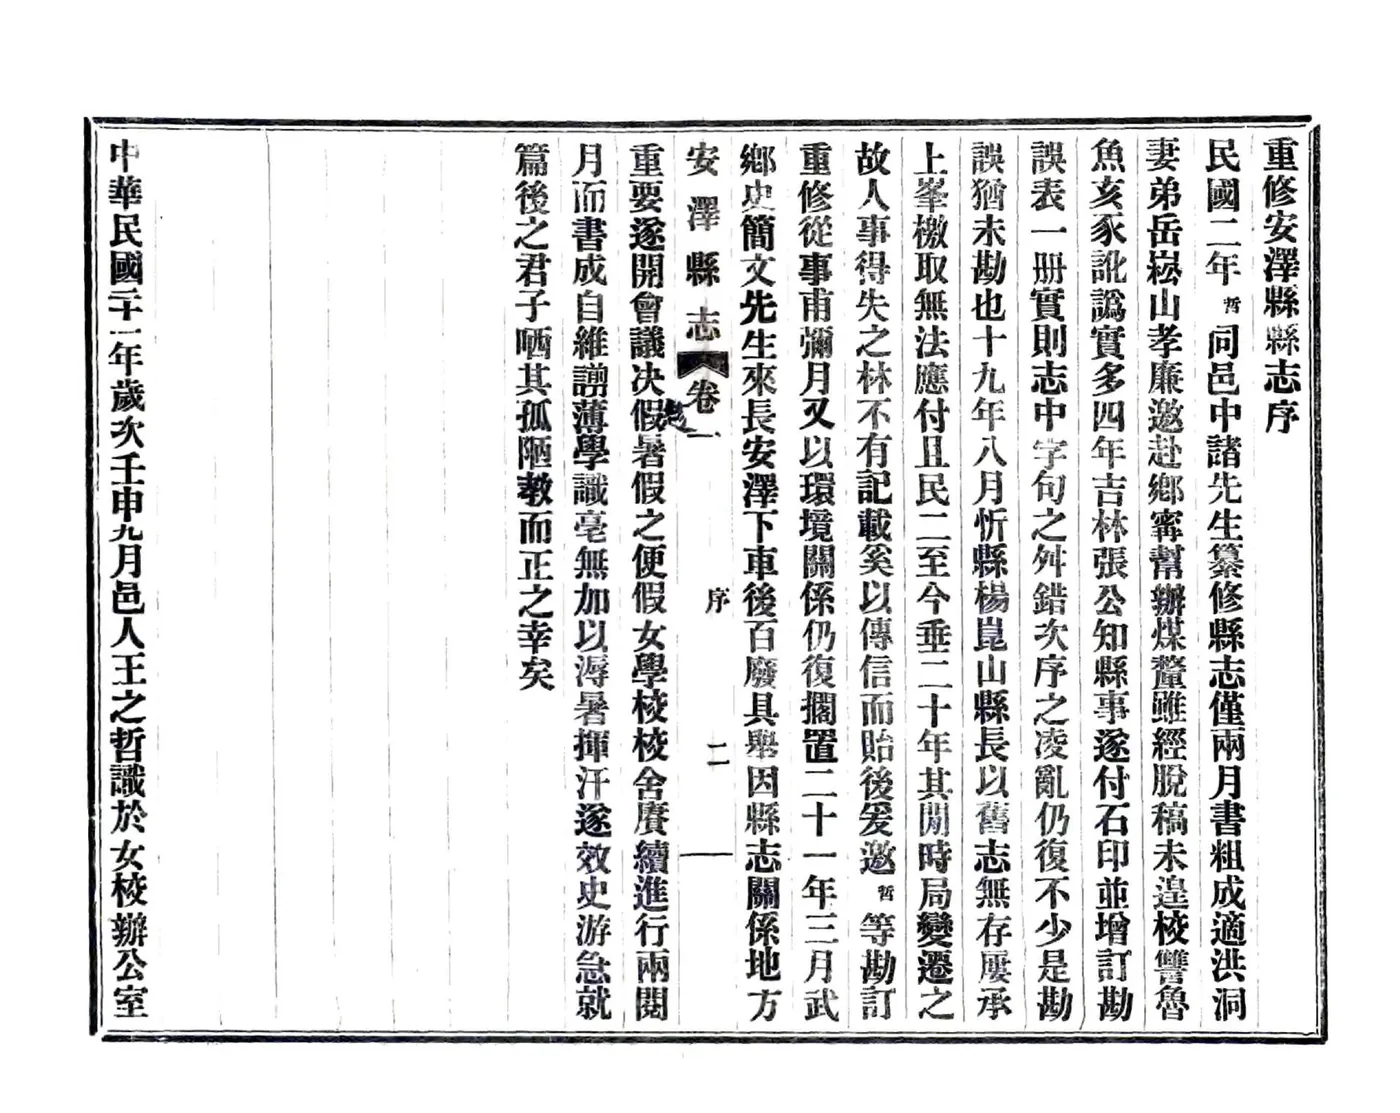 重修安澤縣縣志序
民國二年哲同邑中諸先生纂修縣志僅兩月書粗成適洪洞
妻弟岳崧山孝廉邀赴鄉寗幫辦煤釐雖經脫稿未遑校讐魯
魚亥豕訛譌實多四年吉林張公知縣事遂付石印並增訂勘
誤表一册實則志中字句之舛錯次序之凌亂仍復不少是勘
誤猶未勘也十九年八月忻縣楊崑山縣長以舊志無存屢承
上峯檄取無法應付且民二至今垂二十年其閒時局變遷之
故人事得失之林不有記載奚以傳信而貽後爰邀哲等勘訂
重修從事甫彌月又以環境關係仍復擱置二十一年三月武
鄉史簡文先生來長安澤下車後百廢具舉因縣志關係地方
安澤縣志 卷一 序 二
重要遂開會議决假暑假之便假女學校校舍賡續進行兩閱
月而書成自維謭薄學識毫無加以溽暑揮汗遂效史游急就
篇後之君子哂其孤陋教而正之幸矣
中華民國二十一年歲次壬申九月邑人王之哲識於女校辦公室